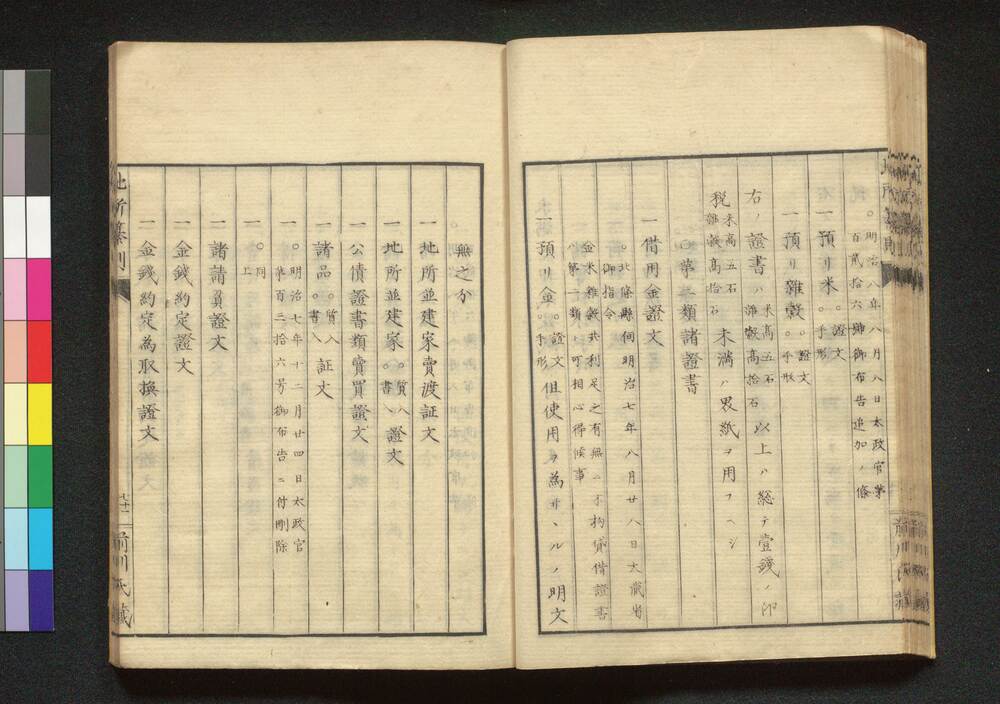 ○明治八年八月八日太政官第
百貳拾六號御布告追加ノ條
一預リ米○證文○手形
一預リ雜穀○證文○手形
右ノ證書ハ米高五石雜穀高拾石以上ハ總テ壹錢ノ印
税米高五石雜穀高拾石未滿ハ界紙ヲ用フヘシ
○第二類諸證書
一借用金證文
○北條縣伺明治七年八月廿八日大藏省
御指令
金米雜穀共利足之有無ニ不拘貸借證書
ハ第二類ト可相心得候事
一預リ金○證文○手形但使用ヲ為サヽルノ明文
無之分
一地所並建家賣渡証文
一地所並建家○質入○書入證文
一公債證書類賣買證文
一諸品○質入○書入証文
○明治七年十二月廿四日太政官
第百三拾六号御布告ニ付刪除
一○同上
一諸請負證文
一金錢約定證文
一金錢約定為取換證文
地所纂
前川氏藏